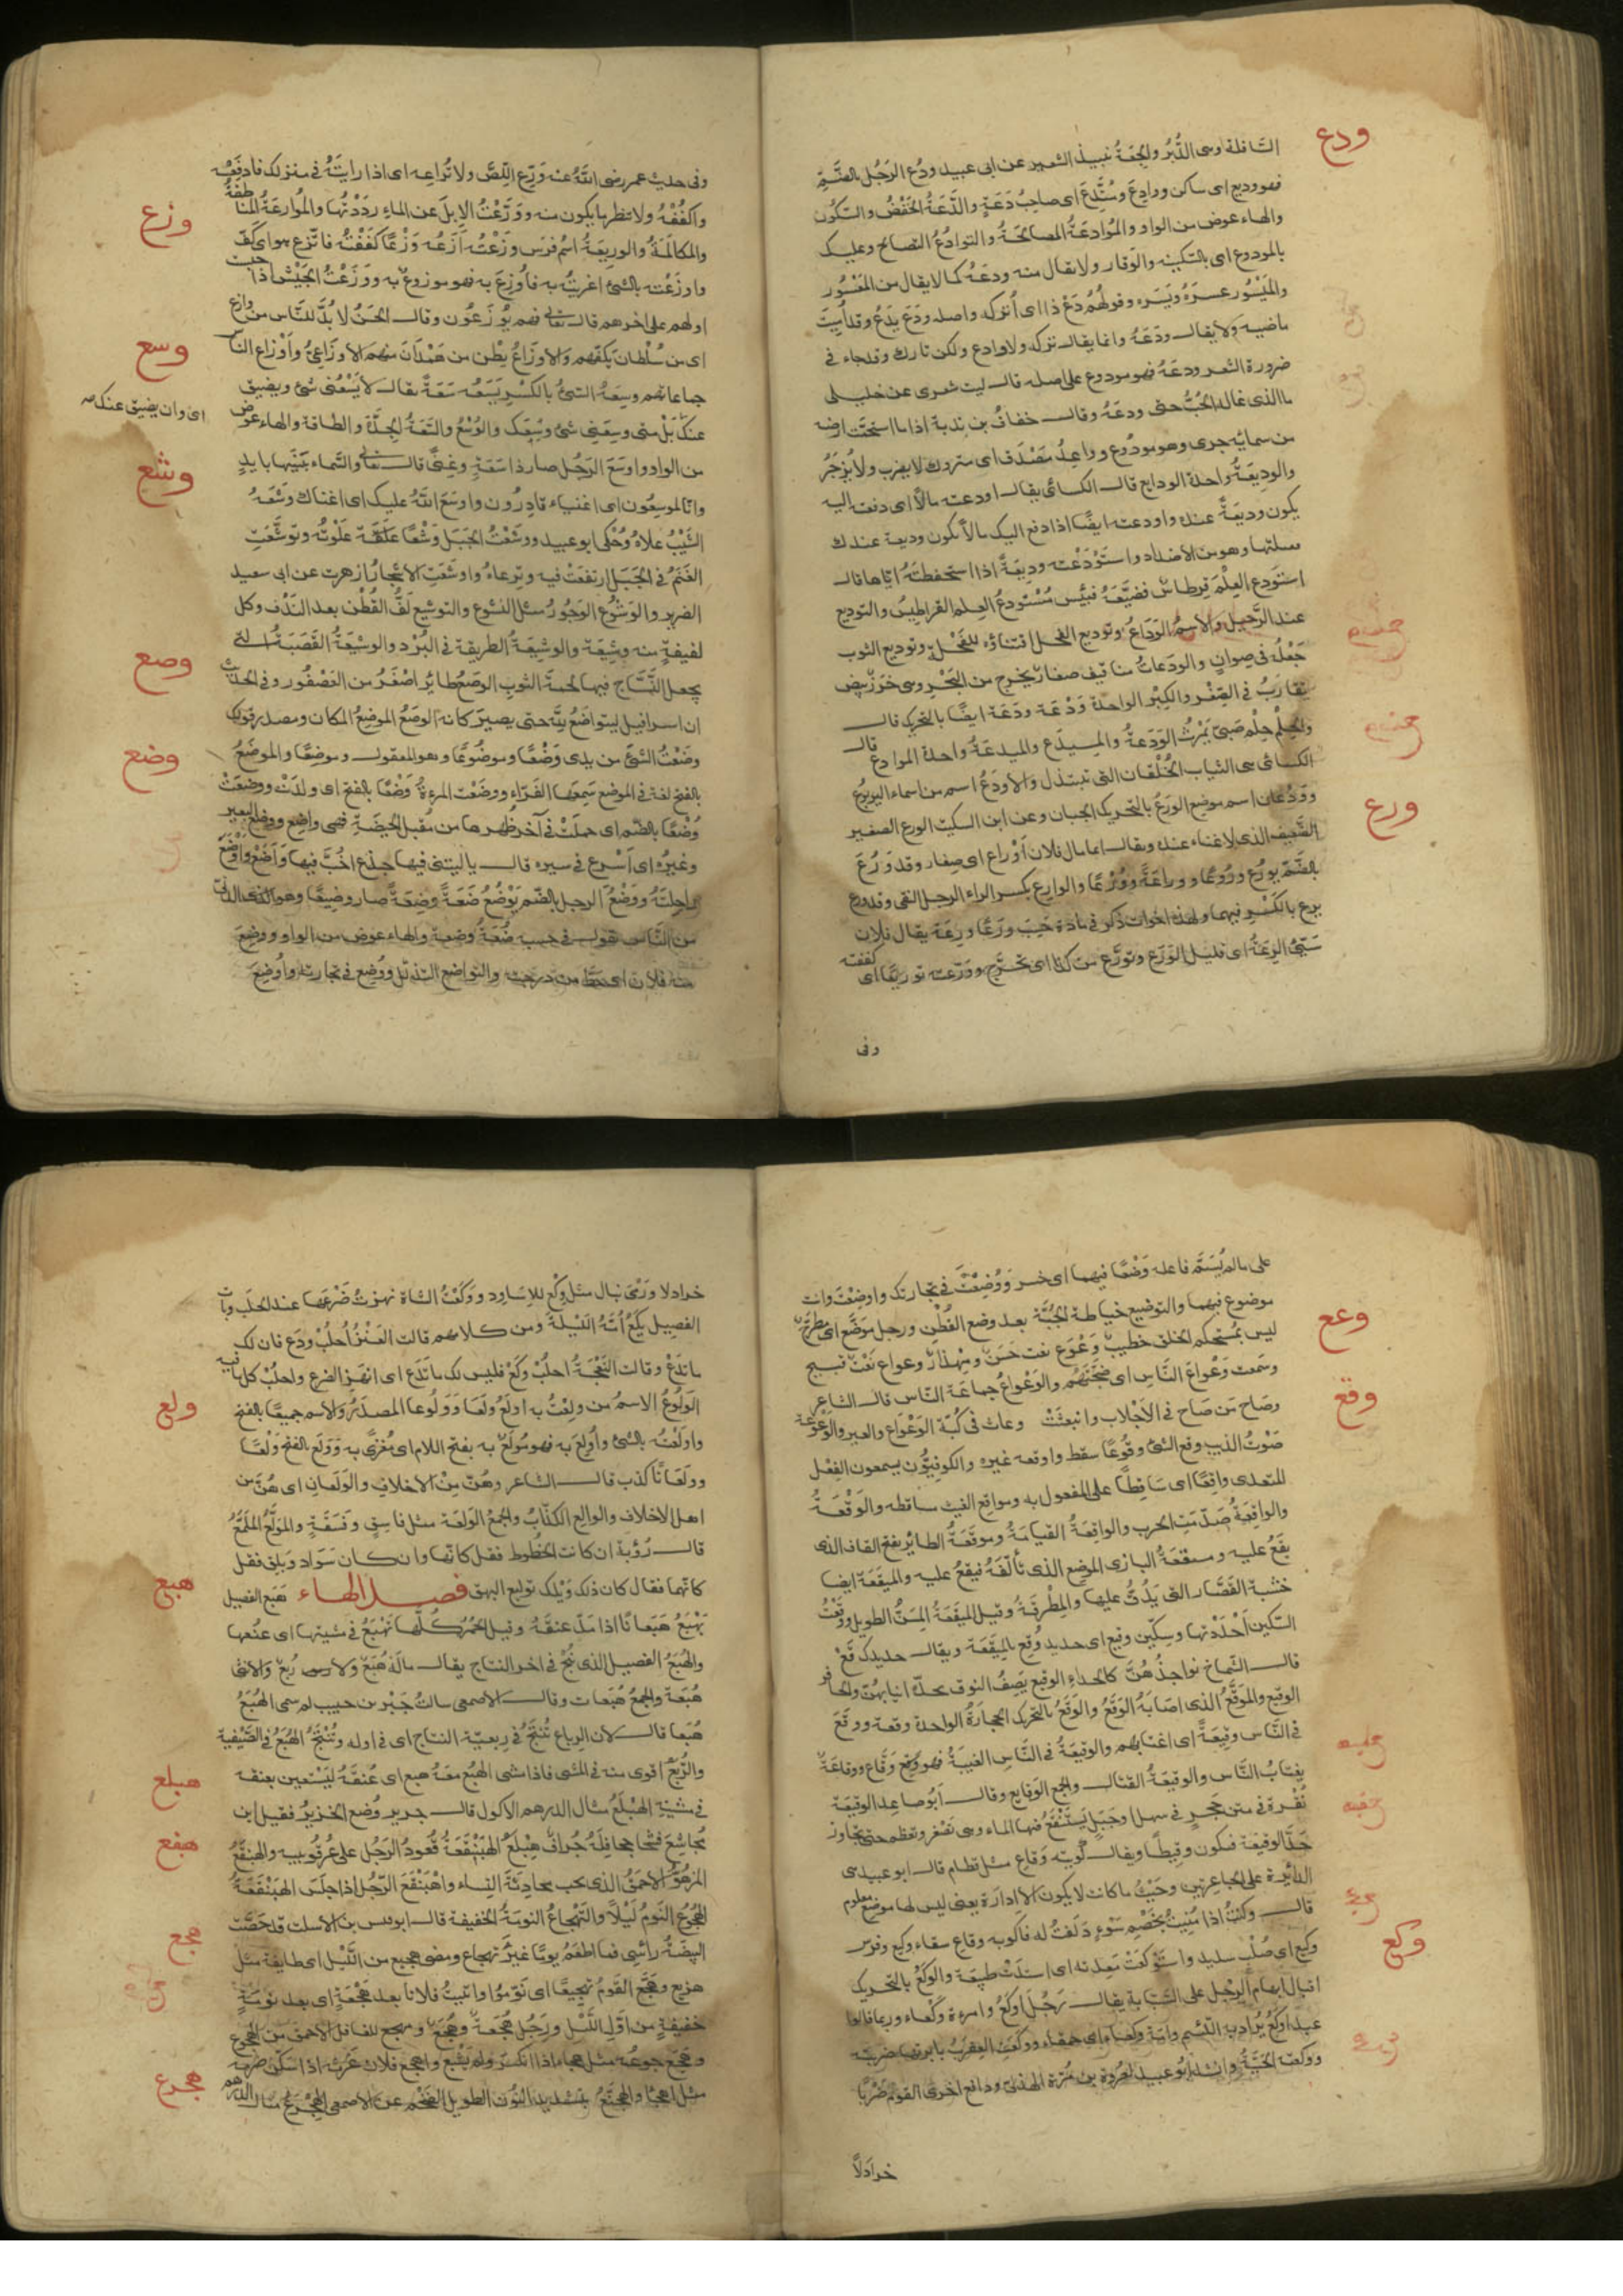 ودع
السافلة وهى الدُّبُر والجِعَةُ نبيذ الشعير عن ابى عبيد ودُع الرَجُل بالضَّم
فهو وديع اى ساكن ووادِعٌ ومُتَّدِع اى صاحِبُ دَعَةٍ والدَّعَةُ الخَفْضُ والسّكون
والهاء عوض من الواو والمُوَادعَةُ المصالحَةُ والتوادُعُ التصالح وعليك
بالمودوع اى بالسكينه والوَقار ولا يقال منه ودعَهُ كما لا يقال من المَعْسُور
والمَيْسُور عسرَهُ ويَسَره وقولُهُم دَعْ ذا اى اُتركه واصله ودَعَ يَدَعُ وقد اُمِيتَ
ماضيه ولا يقال ودَعَهُ وانما يقال تركه ولا وادع ولكن تارك وقد جاء فى
ضرورة الشعر ودعَهُ فهو مودوع على اصله قال ليت شعرى عن خليلى
ما الذى غاله الحُبُّ حتى ودعَهُ وقال خفاف بن ندبة اذا ما استحمّت ارضه
من سمائه جرى وهو مودُوع وواعِدُ مَصْدَق اى متروك لا يضرب ولا يُزجَرُ
والوديعَةُ واحدة الودايع قال الكسائى يقال اودعته مالًا اى دفعته اليه
يكون وديعَةً عنده واودعته ايضًا اذا دفع اليك مالًا يكون وديعة عندك
فقبلتها وهو من الاضداد واستَوْدَعْته وديعَةً اذا استحفظتَهُ اياها قال
استَودع العِلْمَ قِرطاس فضيَّعَهُ فبِئْس مُسْتودعُ العِلم القراطيسُ والتوديع
عند الرَّحيل والاسمُ الوَدَاعُ وتوديع الفحل اقتناؤه للفَحْلِ وتوديع الثوب
جَعْلُه فى صِوانٍ والودَعاتُ مناقيف صغار يخرج من البَحْرِ وهى خَرَزٌ بيض
يتقارَبُ فى الصِّغر والكِبْر الواحدة وَدْعَة ودَعَة ايضًا بالتحريك قال
والحِلْمُ حِلْم صَبىٍّ يَمْرُثُ الوَدَعةُ والمِيدَع والمِيدعَةُ واحدة الموادع قال
الكسائى هى الثياب الخُلْقان التى تبتذل والاودَعُ اسم من اسماء اليربوع
وَودْعَان اسم موضع الورَعُ بالتحريك الجبان وعن ابن السكيت الورع الصغير
ورع
الضَّعِيف الذى لا غناء عنده ويقال انما مال فلان أوْراع اى صِغار وقد وَرُعَ
بالضَّمّ يورُع ورُوعًا ووراعَةً ووُرْعًا والوارع بكسر الراء الرجل التقى وقد ورع
يرع بالكَسْرِ فيهما ولهذه اخوات ذكر فى مادة حَسِبَ ورَعًا ورِعَةً يقال فلان
سَيّئ الرِعَةُ اى قليل الوَرَع وتورَّع من كذا اى تحرَّج وورّعته توريعًا اى كففته
وفى
وفى حديث عمر رضى اللّٰهُ عنه وَرّع اللِّصَّ ولا تُراعِه اى اذا رايتَهُ فى منزلك فادفَعْه
واكفُفْهُ ولا تنظر ما يكون منه ووَرَّعْتُ الابِلَ عن الماء رَدَدْتُها والمُوارعَةُ المنا طقةُ
وزع
والمكالَمةُ والوريعَةُ اسمُ فرَس وزَعْتُه اَزَعُه وَزْعًا كَفَفْتُه فاتَّزع هو اى كَفّ
واوزَعْته بالشئ اغريتُه به فاُوزِعَ به فهو موزوعٌ به ووَزَعْتُ الجَيْش اذا حبست
اولهم على اخرهم قال تعالى فهم يُوزَعُون وقال الحَسَنُ لا بُدَّ للنَّاس من وازع
وسع
اى من سُلْطان يكفّهم والاوزَاعُ بطْن من هَمْدَان منهم الاوزَاعِىّ وأوْزاع النّاس
جماعاتهم وسِعَهُ الشئُ بالكسْرِ يَسَعُه سَعَةً يقال لا يَسَعُنى شئ ويضيق
اى وان يضيق عنك صح
عنكَ بَلْ متى وسِعَنِى شئ وسِعَك والوُسْعُ والسَّعَةُ الجِدَّةُ والطاقة والهاء عوض
وشع
من الواو واوسَعَ الرَجُل صار ذا سَعَةٍ وغِنًى قال تعالى والسَّماء بَنَيْنها بايدٍ
وانا لموسِعُون اى اغنياء قادِرُون واوسَعَ اللّٰهُ عليك اى اغناك وَشَعَهُ
الشَّيْبُ علاهُ وحُكى ابو عبيد ووشَعْتُ الجَبَلَ وَشْعًا علَوْتُه وتوشَّعَتِ
الغَنَمُ فى الجَبَل ارتفَعَتْ فيه وترعاهُ واوشَعَتِ الاشْجارُ ازهرت عن ابى سعيد
الضرير والوَشُوعُ الوَجُورُ مثل النشوع والتوشيع لَفُّ القُطْن بعد النَدْف وكل
لفيفةٍ منه وشِيعَة والوشيعَةُ الطريقة فى البُرْد والوشيعَةُ القَصَبَةُ التى
وصع
يجعل النَّسَّاج فيها لحمةَ الثوبِ الوصَعُ طائر اصْغَرُ من العُصْفُور وفى الحديث
ان اسرافيل ليتواضَعُ للّٰه حتى يصِيرَ كانه الوصَعُ الموضِعُ المكان ومصدر قولك
وضع
وضَعْتُ الشئَ من يدى وَضْعًا وموضُوعًا وهو المعقول وموضِعًا والموضَعُ
بالفتح لغة فى الموضِع سَمِعَها الفَرّاء ووضَعْت المرءةُ وَضْعًا بالفتح اى ولَدَتْ ووضعَتْ
وُضْعًا بالضّم اى حملَتْ فى آخر طُهرها من مُقبل الحَيْضَةِ فهى واضِع ووضَع البعير
وغيرُه اى اَسْرع فى سيره قال يا ليتنى فيها جذع اخُبّ فيها واَضَعْ واَوْضَع
راحِلَتَهُ ووَضُعَ الرجل بالضّم يَوْضُعُ ضَعَةً وضِعَةً صار وضيعًا وهو
من النَّاس يقول فى حسبه ضَعَةُ وضِعة والهاء عوض من الواو ووضِعَ
منه فلان اى حط من درجته والتواضع التذلّل ووُضِع فى تجارته واُوضِعَ
على ما لم يُسَمَّ فاعله وَضْعًا فيهما اى خسر ووُضِعْتَ فى تجارتك واوضِعْتَ وانت
موضوع فيهما والتوضيع خياطة الجُبَّة بعد وضع القُطْن ورجل موَضّع اى مطرّح
وعع
ليس بمُستحكم الخلق خطيب وَعْوَع نعت حَسَنٌ ومِهْذار وعواع نَعْت قبيح
وسمعت وَعْواعَ النَّاس اى ضجَّتَهُم والوَعْواعُ جماعَة النَّاس قال الشاعر
وقع
وصَاح مَن صَاح فى الاَجْلاب وانبعثَتْ وعاث فى كُبّة الوَعْواع والعير والوَعْوَعة
صَوْتُ الذيب وقع الشئ وقُوعًا سقط واوقعه غيره والكوفيُّون يسمعون الفِعْل
للتعدى واقِعًا اى ساقِطًا على المفعول به ومواقع الغيث ساقطه والوَقْعَةُ
والواقِعَةُ صَدْمَتِ الحَرب والواقِعَةُ القِيامَةُ ومَوقَعَةُ الطائر بفتح القاف الذى
يقَعُ عليه وميقَعَةُ البازى الموضع الذى تألّفَهُ فيقعُ عليه والميقَعَة ايضا
خشَبة القَصَّار التى يَدُقُّ عليها والمِطْرقَةُ وقيل المِيقَعَةُ المِسَنُّ الطويل ووقَعْتُ
السّكين اَحْدَدْتها وسِكّين وقيع اى حديد وُقِع بالمِيقَعَة ويقال حديدك قَعْ
قال الشماخ نواجِذُهنَّ كالحِدَاءِ الوقيع يَصِفُ النوق بحِدّة انيابهنّ والحافر
الوقيع والمَوقّعُ الذى اصَابَهُ الوَقَعُ والوَقَعُ بالتحريك الحجارَةُ الواحدة وقعة ووَقَع
فى النَّاس وقِيعَةً اى اغتابهم والوقيعَةُ فى النَّاس الغيبَةُ فهو وقِعٌ وَقَّاع ووقاعَةٌ
يغتابُ النَّاس والوقيعَةُ القتال والجمع الوقايع وقال ابُو صاعد الوقيعَة
نُقْرة فى متن حَجر فى سهل اوجَبَلٍ يَسْتَنْقعُ فيها الماء وهى تصْغر وتعظم حتى تجاوز
حَدَّ الوقيعَة فتكون وقيطًا ويقال كَويته وَقَاعِ مثل قطام قال ابو عبيد هى
الدائرة على الجاعِرتين وحَيْثُ ما كانت لا يكون الا اِدَارَةً يعنى ليس لها موضع معلوم
قال وكُنْتُ اذا مُنِيتُ بخَصْمِ سَوْءٍ دَلَفْتُ له فاكويه وقاعِ سقاء وكيع وفرس
وكع
وكيع اى صُلْب شديد واستَوْكعَتْ مَعِدته اى اشتدَّت طبيعَتُه والوَكَعُ بالتحريك
اقبال ابهام الرِجْل على السَّبّابة يقال رَجُل اوكَعُ وامرءة وَكْعاء وربما قالوا
عبد اَوكَعُ يُرادبه اللّئيم وامَة وكعاء اى حمقاء ووكَعَتْه العقربُ بابرتها ضربته
ووكعَتْه الحيَّة وانشد ابُو عبيد لعُروة بن مُرّة الهذلى ودافع اخرى القوم ضَرْبًا
خرادلاً
خرادلا ورَمْىَ نبال مثل وكْع الاسَاود ووكَعْتُ الشاة نهزتُ ضَرْعَها عند الحلب وبات
الفصِيل يكَعُ اُمَّهُ اللَّيْلَةَ ومن كلامهم قالت العنْزُ اُحلُبْ ودَع فان لك
ما تدَعْ وقالت النَّعْجَةُ احلُبْ وكَعْ فليس لك ما تَدَع اى انهَز الضرع واحلُبْ كل ما فيه
ولع
الوَلُوعُ الاسمُ من ولِعْتُ به اولَعُ ولَعًا ووَلُوعا المصدَرُ والاسم جميعًا بالفتح
واولَعْتُه بالشئ واُولِعَ به فهو مُولَع به بفتح اللام اى مُغرًى به ووَلَع بالفتح وَلْعًا
وولَعَانًا كذب قال الشاعر وهُنّ مِنْ الاخلاف والوَلَعانِ اى هُنّ من
اهل الاخلاف والوالِع الكذّابُ والجمعُ الوَلَعَة مثل فاسِقٍ وفَسَقَةٍ والمُوَلَّعُ المُلَمَّعُ
قال رُؤبَة ان كانت الخطوط فقل كانّها وان كان سَوَاد وبلق فقل
هبع
كانّهما فقال كان ذلك وَيْلك توليع البهق فصل الهاء هَبَع الفصيل
يَهْبَعُ هَبَعانًا اذا مَدّ عنقَهُ وقيل الحُمُر كُلّها تَهْبَعُ فى مشيتها اى عنُقها
والهُبَعُ الفصيل الذى نُتِجَ فى اخر النتاج يقال مالَهُ هُبَعٌ ولا رُبَعٌ والانثى
هُبَعَة والجمعُ هُبَعات وقال الاصمعى سالتُ جَبْرَ بن حبيب لم سمى الهُبَعُ
هُبَعا قال لان الرِباع تُنْتَجُ فى رِبعيّة النتاج اى فى اوله ويُنْتَجُ الهُبَعُ فى الصَّيْفِية
هبلع
والرُّبَعُ اقوى منه فى المشى فاذا مشى الهُبَع معَهُ هبع اى عُنقَهُ ليَسْتعين بعنقه
فى مشيَتِهِ الهِبْلَعُ مثال الدرهم الاكول قال جرير وُضع الخَزيرُ فقيل اين
هبقع
مُجاشِعٌ فشحا جحافِلَهُ جُراف هِبْلَعُ الهَبَنْقَعَةُ قعُودُ الرَجُل على عُرقُوبيه والهبنقع
المزهُوّ الاحمَقُ الذى يحب محادثَةَ النِساء واهْبَنْقَعَ الرَّجُل اذا جلَس الهَبَنْقَعَةَ
هجع
الهُجُوع النَوْمُ لَيْلاً والتَّهْجاعُ النومَةُ الخفيفة قال ابو قيس بن الاسلت قد حَصّت
البيضَةُ رأسِى فما اطعَمُ نومًا غيرَ تَهجاع ومضى هجيع من اللَّيْل اى طايفة مثل
هزيع وهَجَّعَ القَومُ تَهجِيعًا اى نَوّموا واتيتُ فلانا بعد هَجْعَةٍ اى بعد نَوْمَةٍ
خفيفةٍ من اوّل اللَّيْل ورجُل هُجَعَة وهُجَع ومِهجع للغافل الاحمق من الهجوع
هجرع
وهجع جوعُه مثل هجاء اذا انكسَرَ ولم يشْبع واهجع فلان غَرثه اذا سكّن ضرمه
مثل اهجأ والهجنّعُ بتشديد النُون الطويل الضخم عن الاصمعى الهِجْرعُ مثال الدرهم